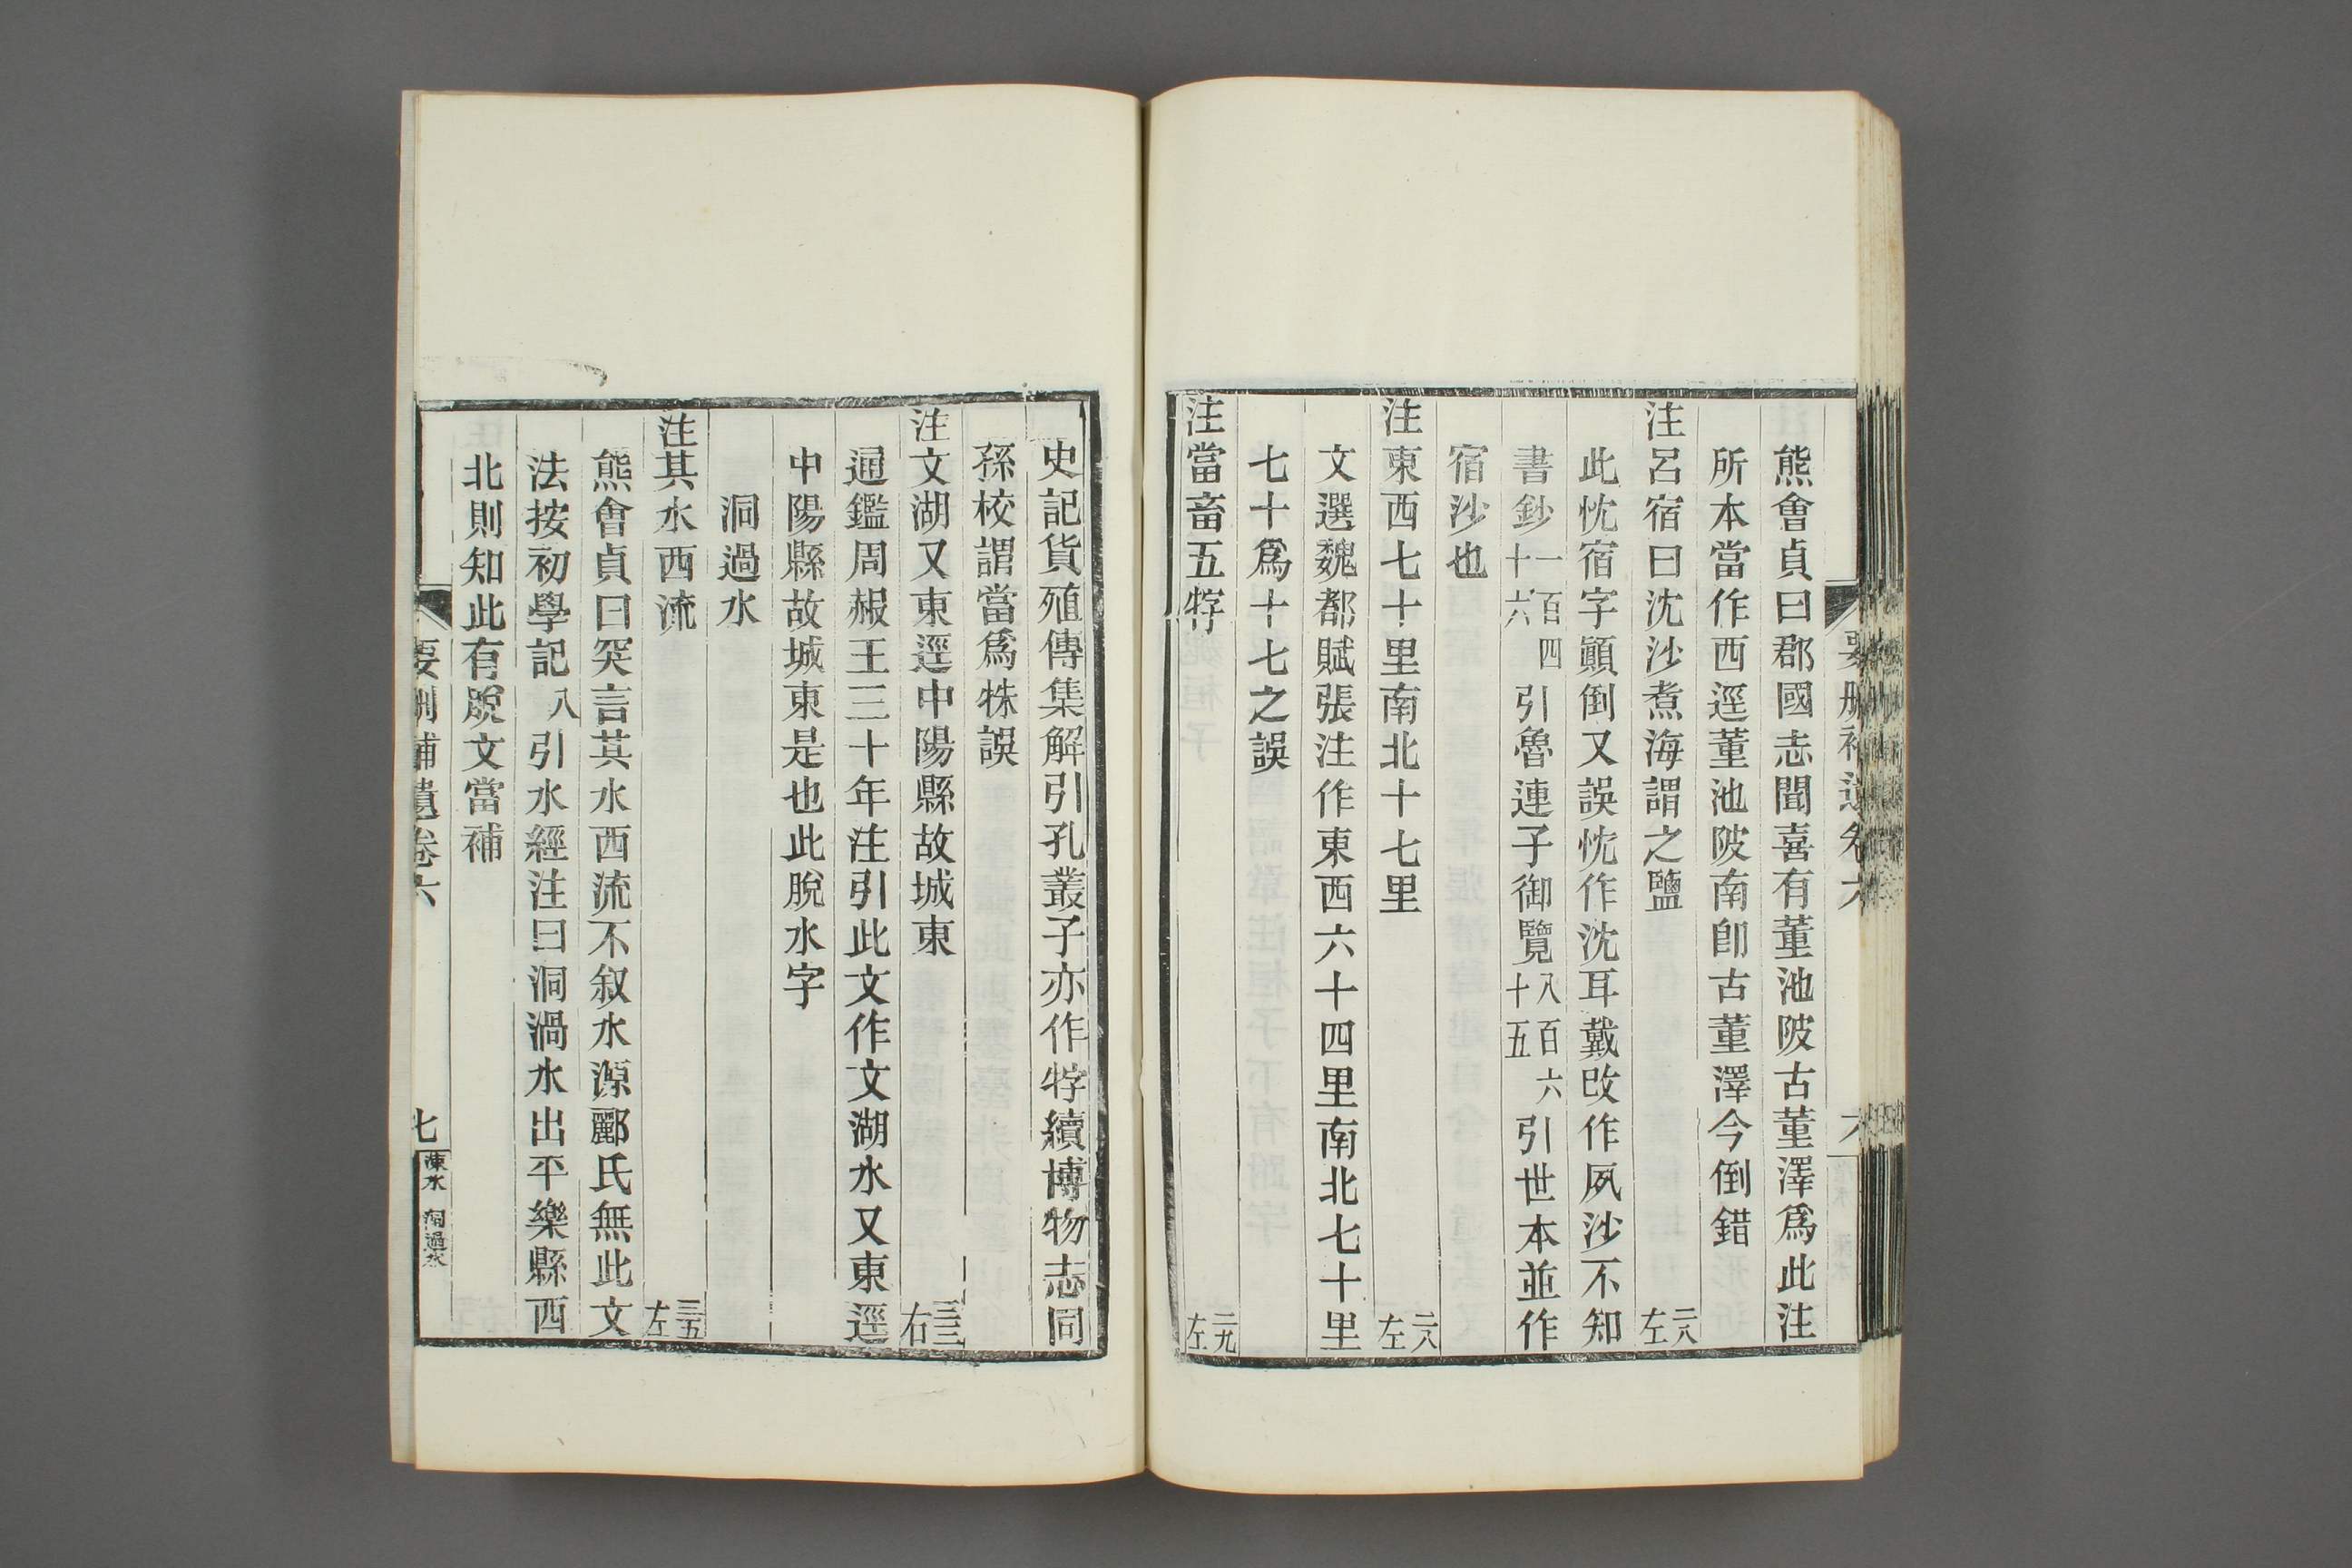 熊會貞曰郡國志聞喜有董池陂古董澤爲此注
所本當作西逕董池陂南卽古董澤今倒錯
注呂宿曰沈沙煮海謂之鹽 二八左
此忱宿字顚倒又誤忱作沈耳戴改作夙沙不知
書鈔一百四十六引魯連子御覽八百六十五引世本並作
宿沙也
注東西七十里南北十七里 二八左
文選魏都賦張注作東西六十四里南北七十里
七十爲十七之誤
注當畜五牸 二九左
史記貨殖傳集解引孔叢子亦作牸續博物志同
孫校謂當爲牸誤
注文湖又東逕中陽縣故城東 三三右
通鑑周赧王三十年注引此文作文湖水又東逕
中陽縣故城東是也此脫水字
洞過水
注其水西流 三五左
熊會貞曰突言其水西流不叙水源酈氏無此文
法按初學記八引水經注曰洞渦水出平樂縣西
北則知此有脫文當補
要刪補遺卷六
七
涑水 洞過水